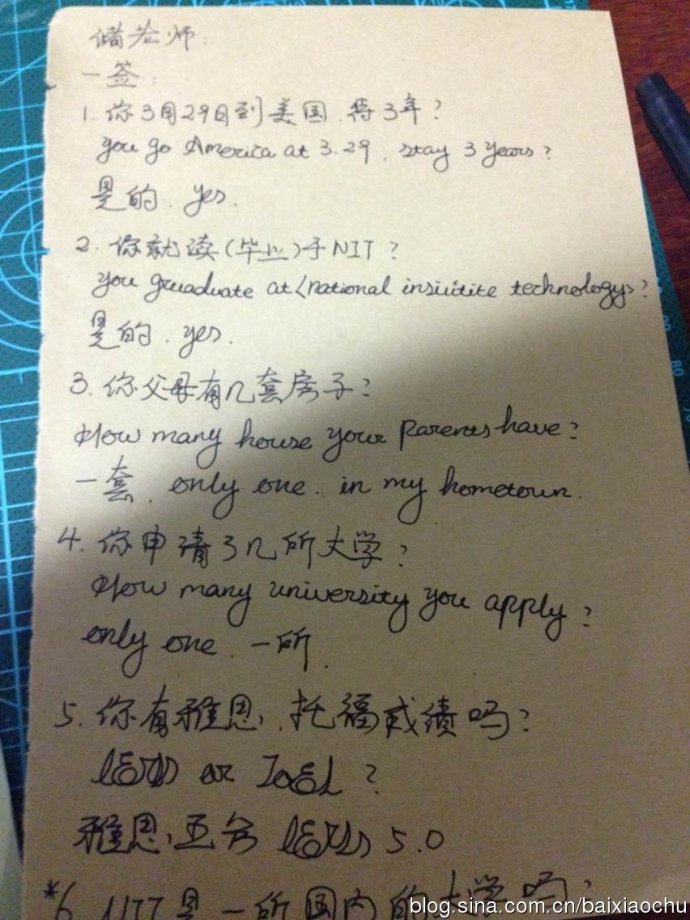 储老师：
一签：
1. 你3月29日到美国．待3年？
you go America at 3.29. stay 3 years?
是的．yes.
2. 你就读(毕业)于NIT？
you gruaduate at<national insiutite technology>?
是的．yes.
3. 你父母有几套房子？
How many house your parents have?
一套．only one. in my hometown.
4. 你申请了几所大学？
How many university you apply?
only one. 一所．
5. 你有雅思、托福成绩吗？
IELTS or ToEFL?
雅思．五分 IELTS 5.0
*6. NIT是一所国内的大学吗？
blog.sina.com.cn/baixiaochu